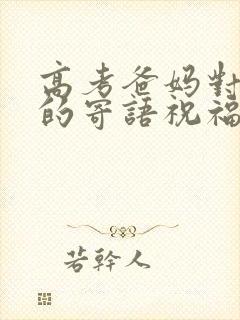 高考爸妈對
的寄語祝福
若幹人